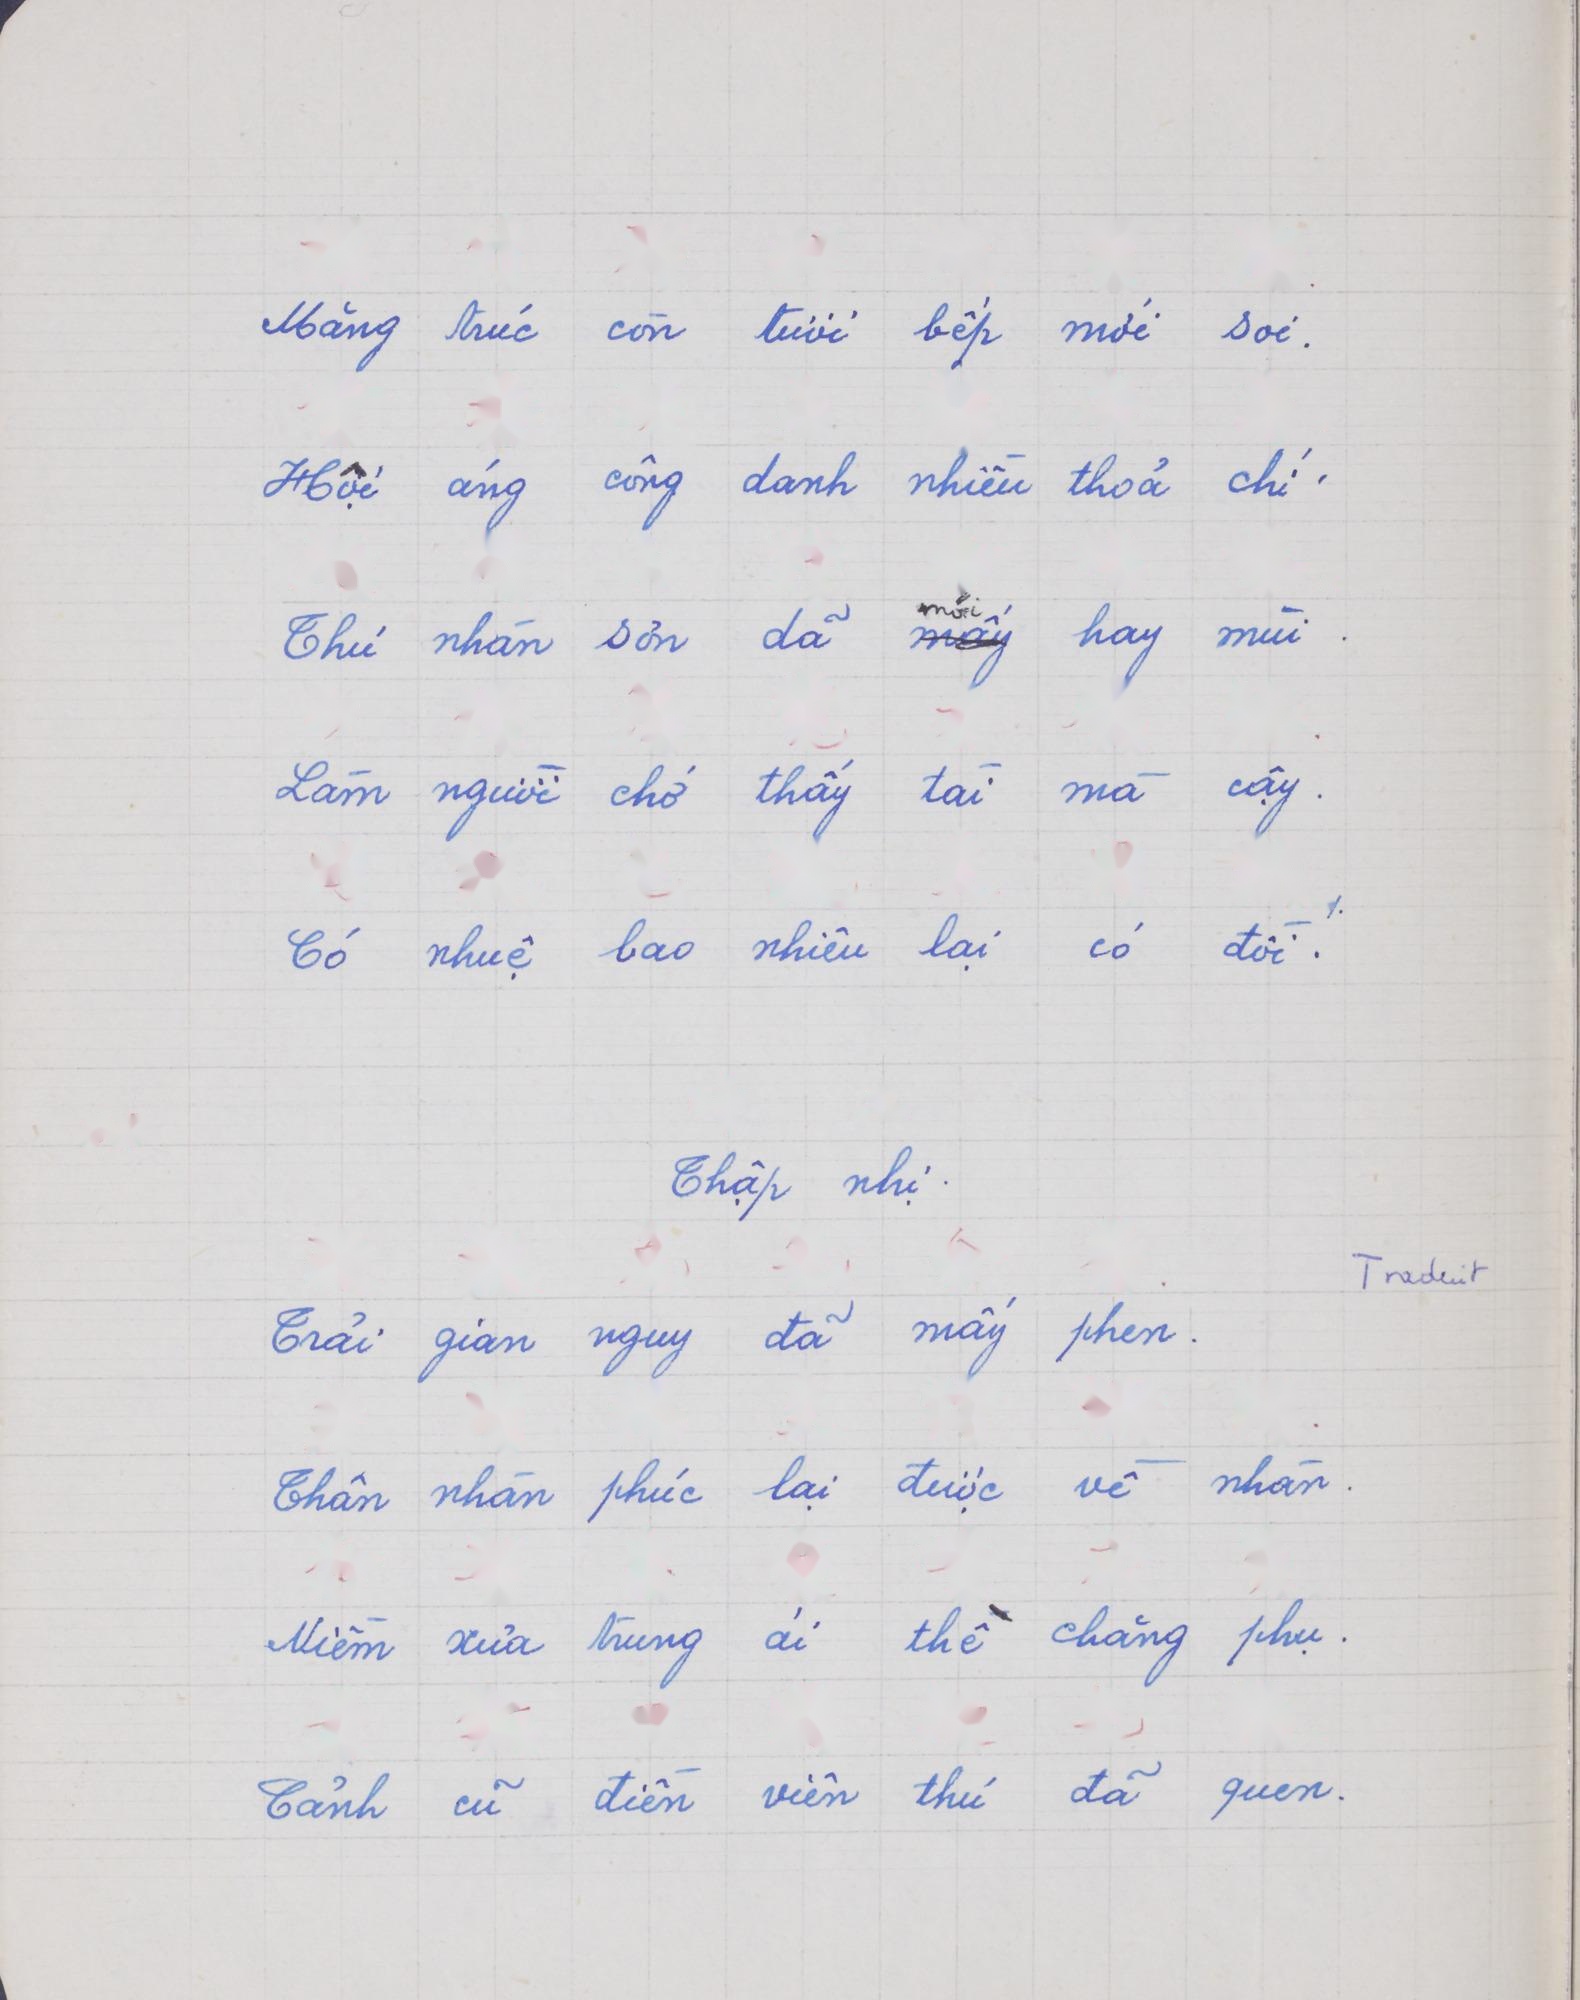 Măng trúc còn tươi bếp mới soi.
Hội áng công danh nhiều thoả chí.
Thú nhàn sơn dã mới mấy hay mùi.
Làm người chớ thấy tài mà cậy.
Có nhuệ bao nhiêu lại có đồi./.
Thập nhị.
Traduit
Trải gian nguy đã mấy phen.
Thân nhàn phúc lại được về nhàn.
Niềm xưa trung ái thề chăng phụ.
Cảnh cũ điền viên thú đã quen.